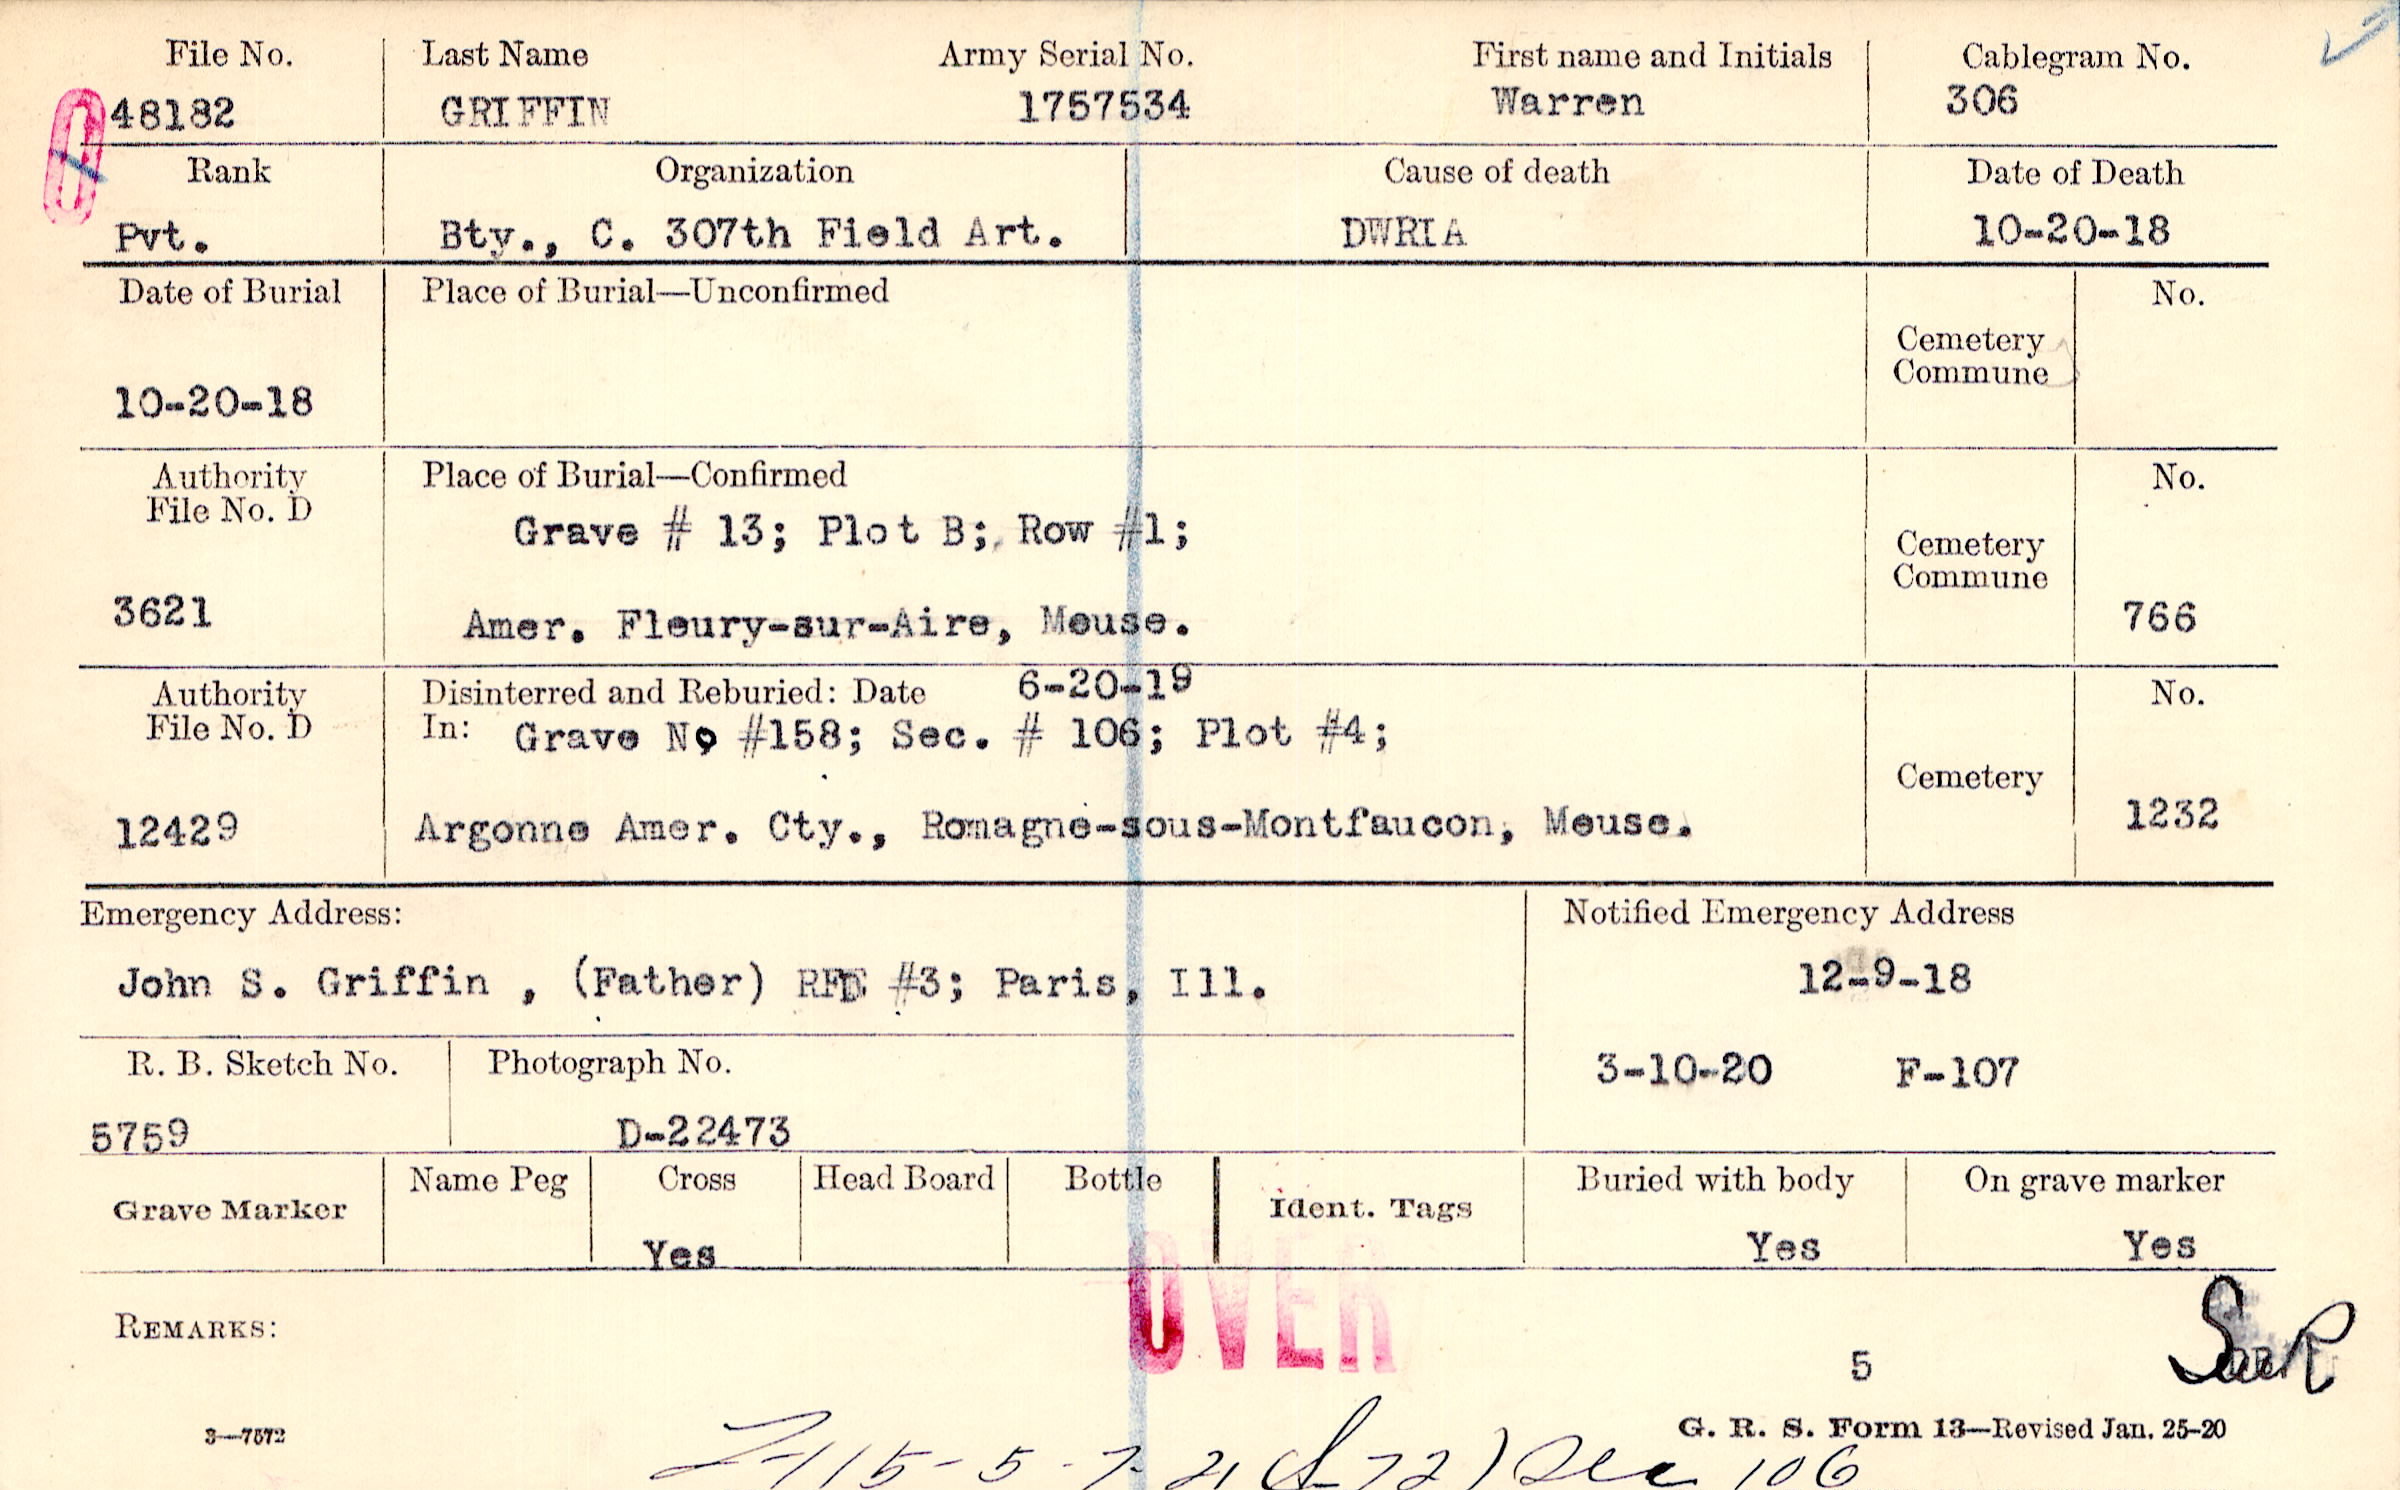 File No. Last Name Army Serial No. First name and Initials Cablegram No.
48182 GRIFFIN 1757534 Warren 306
Rank Organization Cause of death Date of Death
Pvt. Bty., C. 307th Field Art. DWRIA 10-20-18
Date of Burial Place of Burial—Unconfirmed No.
Cemetery
Commune
10-20-18
Authority Place of Burial—Confirmed No.
File No. D
Grave # 13; Plot B; Row #1;
Cemetery
Commune
3621 Amer. Fleury-sur-Aire, Meuse. 766
Authority Disinterred and Reburied: Date 6-20-19 No.
File No. D In: Grave No #158; Sec. # 106; Plot #4;
Cemetery
12429 Argonne Amer. Cty., Romagne-sous-Montfaucon, Meuse. 1232
Emergency Address: Notified Emergency Address
John S. Griffin , (Father) RFD #3; Paris, Ill. 12-9-18
R. B. Sketch No. Photograph No. 3-10-20 F-107
5759 D-22473
Grave Marker Name Peg Cross Head Board Bottle Ident. Tags Buried with body On grave marker
Yes Yes Yes
OVER
REMARKS:
5
3—7572 G. R. S. Form 13—Revised Jan. 25-20
5-7-21 Sec 106